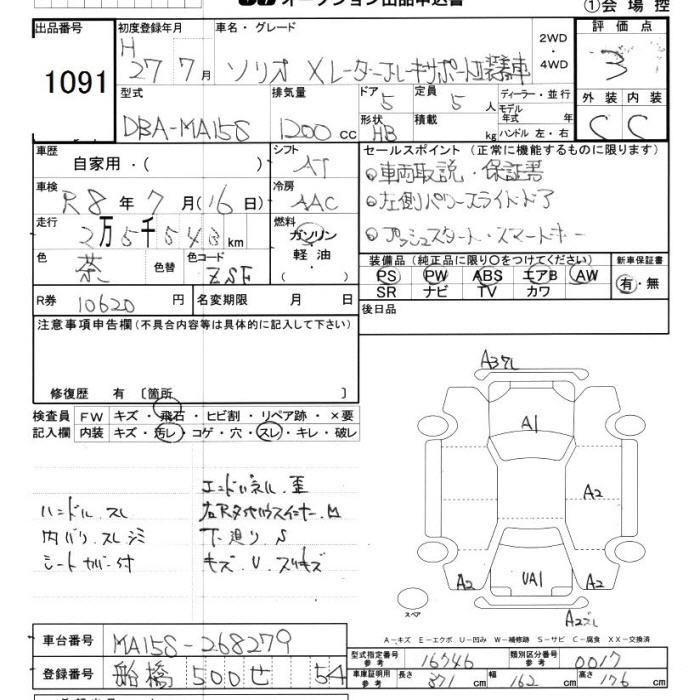 オークション出品申込書
①会場控
出品番号
1091
初度登録年月
H
27 7月
車名・グレード
ソリオ Xレーダーブレーキサポート装着車
2WD・
4WD
評価点
3
型式
DBA-MA15S
排気量
1200 cc
ドア
5
形状
HB
定員
5 人
積載
kg
ディーラー・並行
モデル
年式 年
ハンドル 左・右
外装 内装
C C
車歴
自家用・( )
シフト
AT
車検
R8年7月(16日)
冷房
AAC
走行
2万5千543km
燃料
ガソリン
軽油・
( )
色
茶
色替
色コード
ZSF
R券 10620円
名変期限 月 日
セールスポイント(正常に機能するものに限ります)
●車両取説・保証書
●左側パワースライドドア
●プッシュスタート・スマートキー
装備品(純正品に限り○をつけてください)
PS PW ABS エアB AW
SR ナビ TV カワ
新車保証書
有・無
後日品
注意事項申告欄(不具合内容等は具体的に記入して下さい)
修復歴 有 〔箇所 〕
検査員 FW キズ・飛石・ヒビ割・リペア跡・×要
記入欄 内装 キズ・汚レ・コゲ・穴・スレ・キレ・破レ
ハンドル.スレ
内バリ.スレシミ
シートカバー付
エンドパネル.歪
右Rタイヤハウスインナー.M
下廻り S
キズ.U.スリキズ
A3ズレ
A1
A2
A2
A2
UA1
A2ズレ
スペア
A-キズ E-エクボ U-凹み W-補修跡 S-サビ C-腐食 XX-交換済
車台番号 MA15S-268279
登録番号 船橋 500 せ 54
型式指定番号
参考
16746
類別区分番号
参考
0017
車庫証明用
参考
長さ 371 cm 幅 162 cm 高さ 176 cm